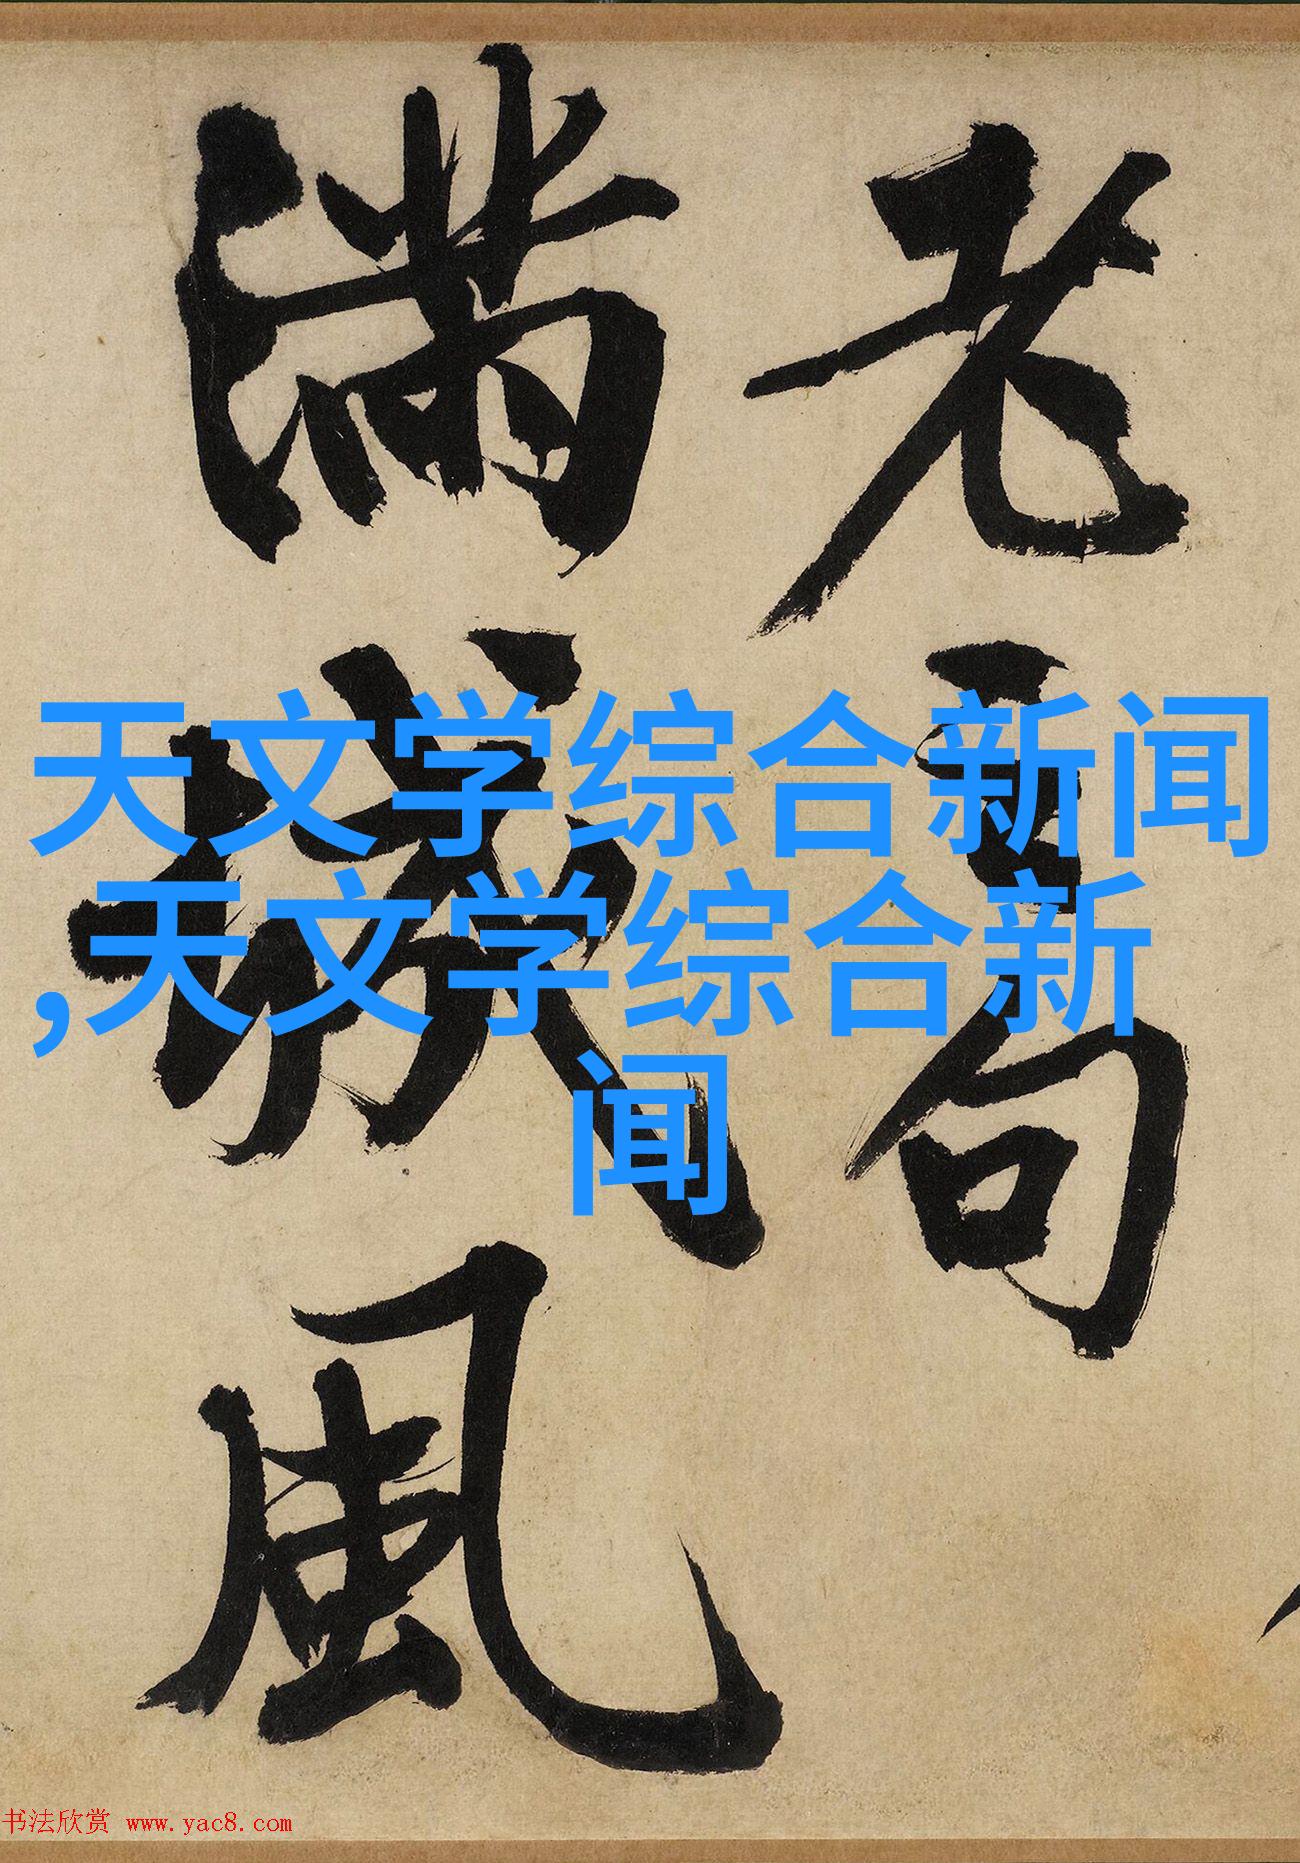 老句
滿城風
天文学综合新闻
,天文学综合新
闻
书法欣赏 www.yac8.com